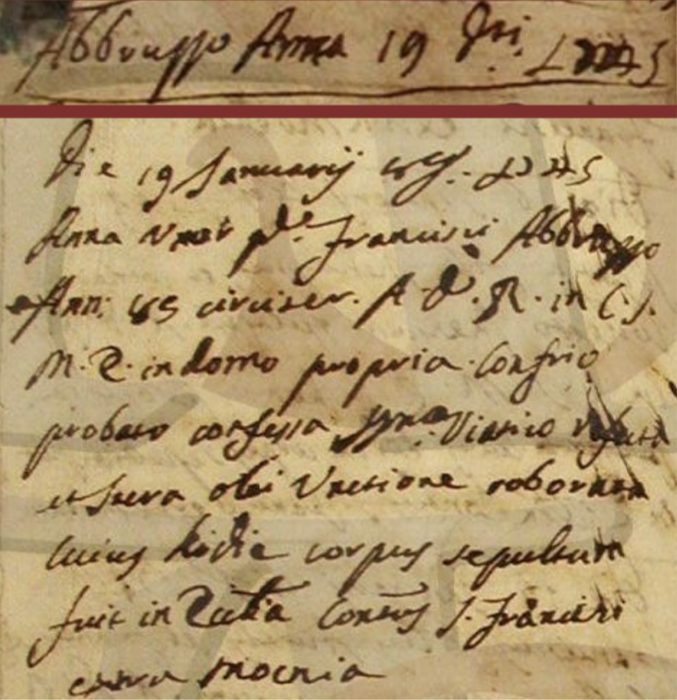 Abbruzzo Anna 19 Jan:
Die 19 Januarij
Anna Uxor Francisci Abbruzzo
Ann: 45 circiter. A. D. R. in C. S.
M. E. in domo propria Confrio
probato confessa SSmo Viatico refecta
et Sacra olei Unctione roborata
Cuius hodie corpus sepultum
fuit in Ecclia Contus S. Francisci
extra moenia